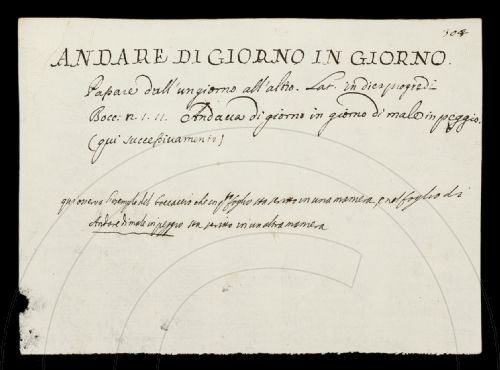 304
ANDARE DI GIORNO IN GIORNO.
Passare dall'un giorno all'altro. Lat. in dies progredi
Bocc: n. 1. 11. Andava di giorno in giorno di male in peggio.
(qui successivamente)
qui osserva l'esemplo del Boccaccio che in qto foglio sta scritto in una maniera, e nel foglio di
Andare di male in peggio sta scritto in un altra maniera